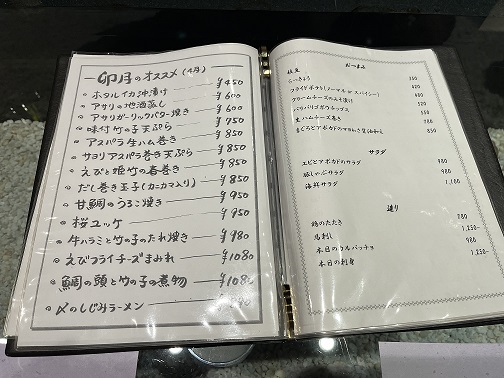 卯月のオススメ(4月)
ホタルイカ沖漬け ¥450
アサリの地酒蒸し ¥600
アサリガーリックバター焼き ¥600
味付竹の子天ぷら ¥750
アスパラ生ハム巻き ¥850
サヨリアスパラ巻き天ぷら ¥850
えびと姫竹の春巻き ¥850
だし巻き玉子(カニカマ入り) ¥850
甘鯛のうろこ焼き ¥950
桜ユッケ ¥950
牛ハラミと竹の子のたれ焼き ¥980
えびフライチーズまみれ ¥1080
鯛の頭と竹の子の煮物 ¥1080
〆のしじみラーメン
おつまみ
枝豆
らっきょう
フライドポテト(ノーマル or スパイシー)
クリームチーズのみそ漬け
パリパリゴボウチップス
生ハムチーズ巻き
まぐろとアボカドのマヨわさび醤油和え 850
サラダ
エビとアボカドのサラダ 980
豚しゃぶサラダ 980
海鮮サラダ 1,180
造り
鶏のたたき 780
馬刺し 1,250~
本日のカルパッチョ
本日の刺身 1,250~